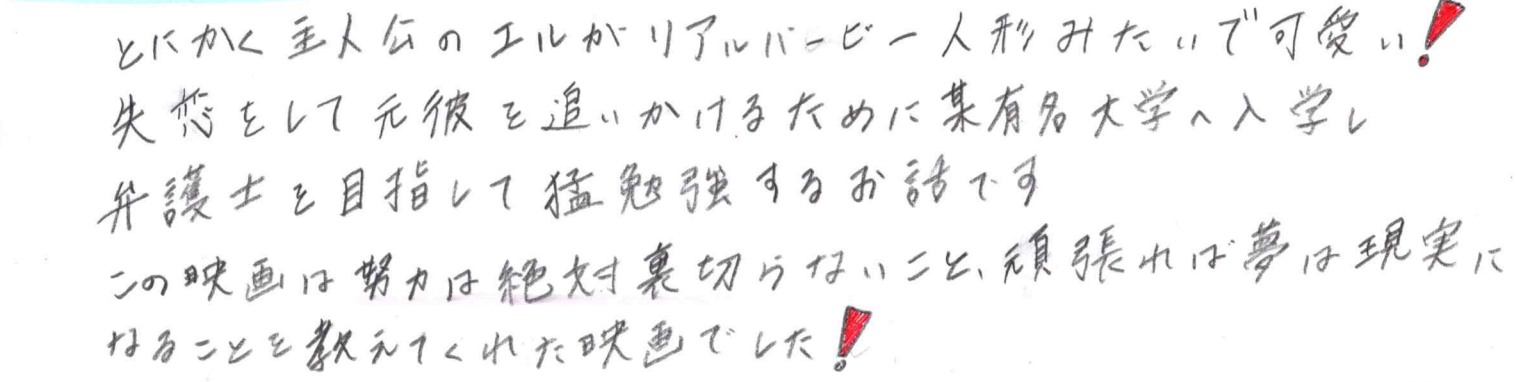 とにかく主人公のエルがリアルバービー人形みたいで可愛い!
失恋をして元彼を追いかけるために某有名大学へ入学し
弁護士を目指して猛勉強するお話です
この映画は努力は絶対裏切らないこと、頑張れば夢は現実に
なることを教えてくれた映画でした!